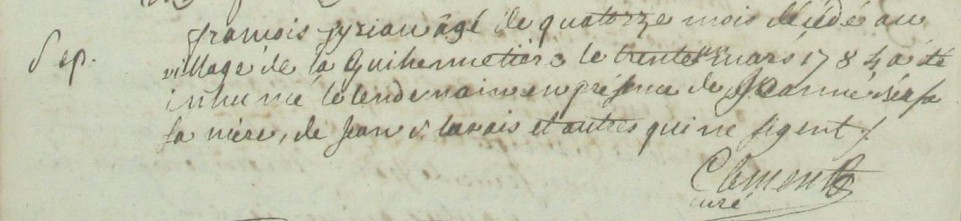 Sep. françois âgé de quatorze mois décédé au
village de la Guihennetiere le trente mars 1784 a été
inhumé le lendemain en présence de Jeanne
sa mère, de Jean et autres qui ne signent /
Clement
curé